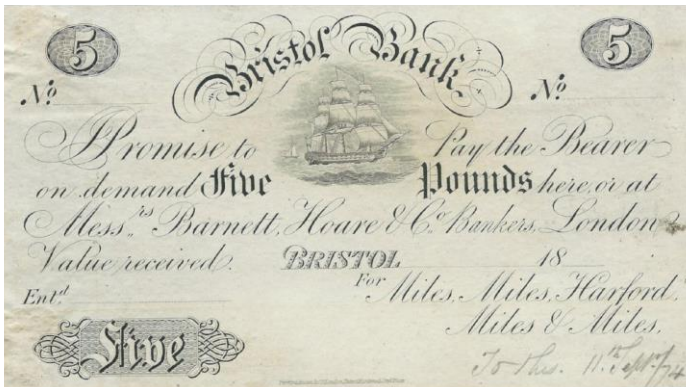 5 Bristol Bank 5
No. No.
I Promise to Pay the Bearer
on demand Five Pounds here, or at
Mess.rs Barnett, Hoare & Co. Bankers, London
Value received. BRISTOL 18
Ent.d
For Miles, Miles, Harford,
Miles & Miles.
Five
11th Sept. /74